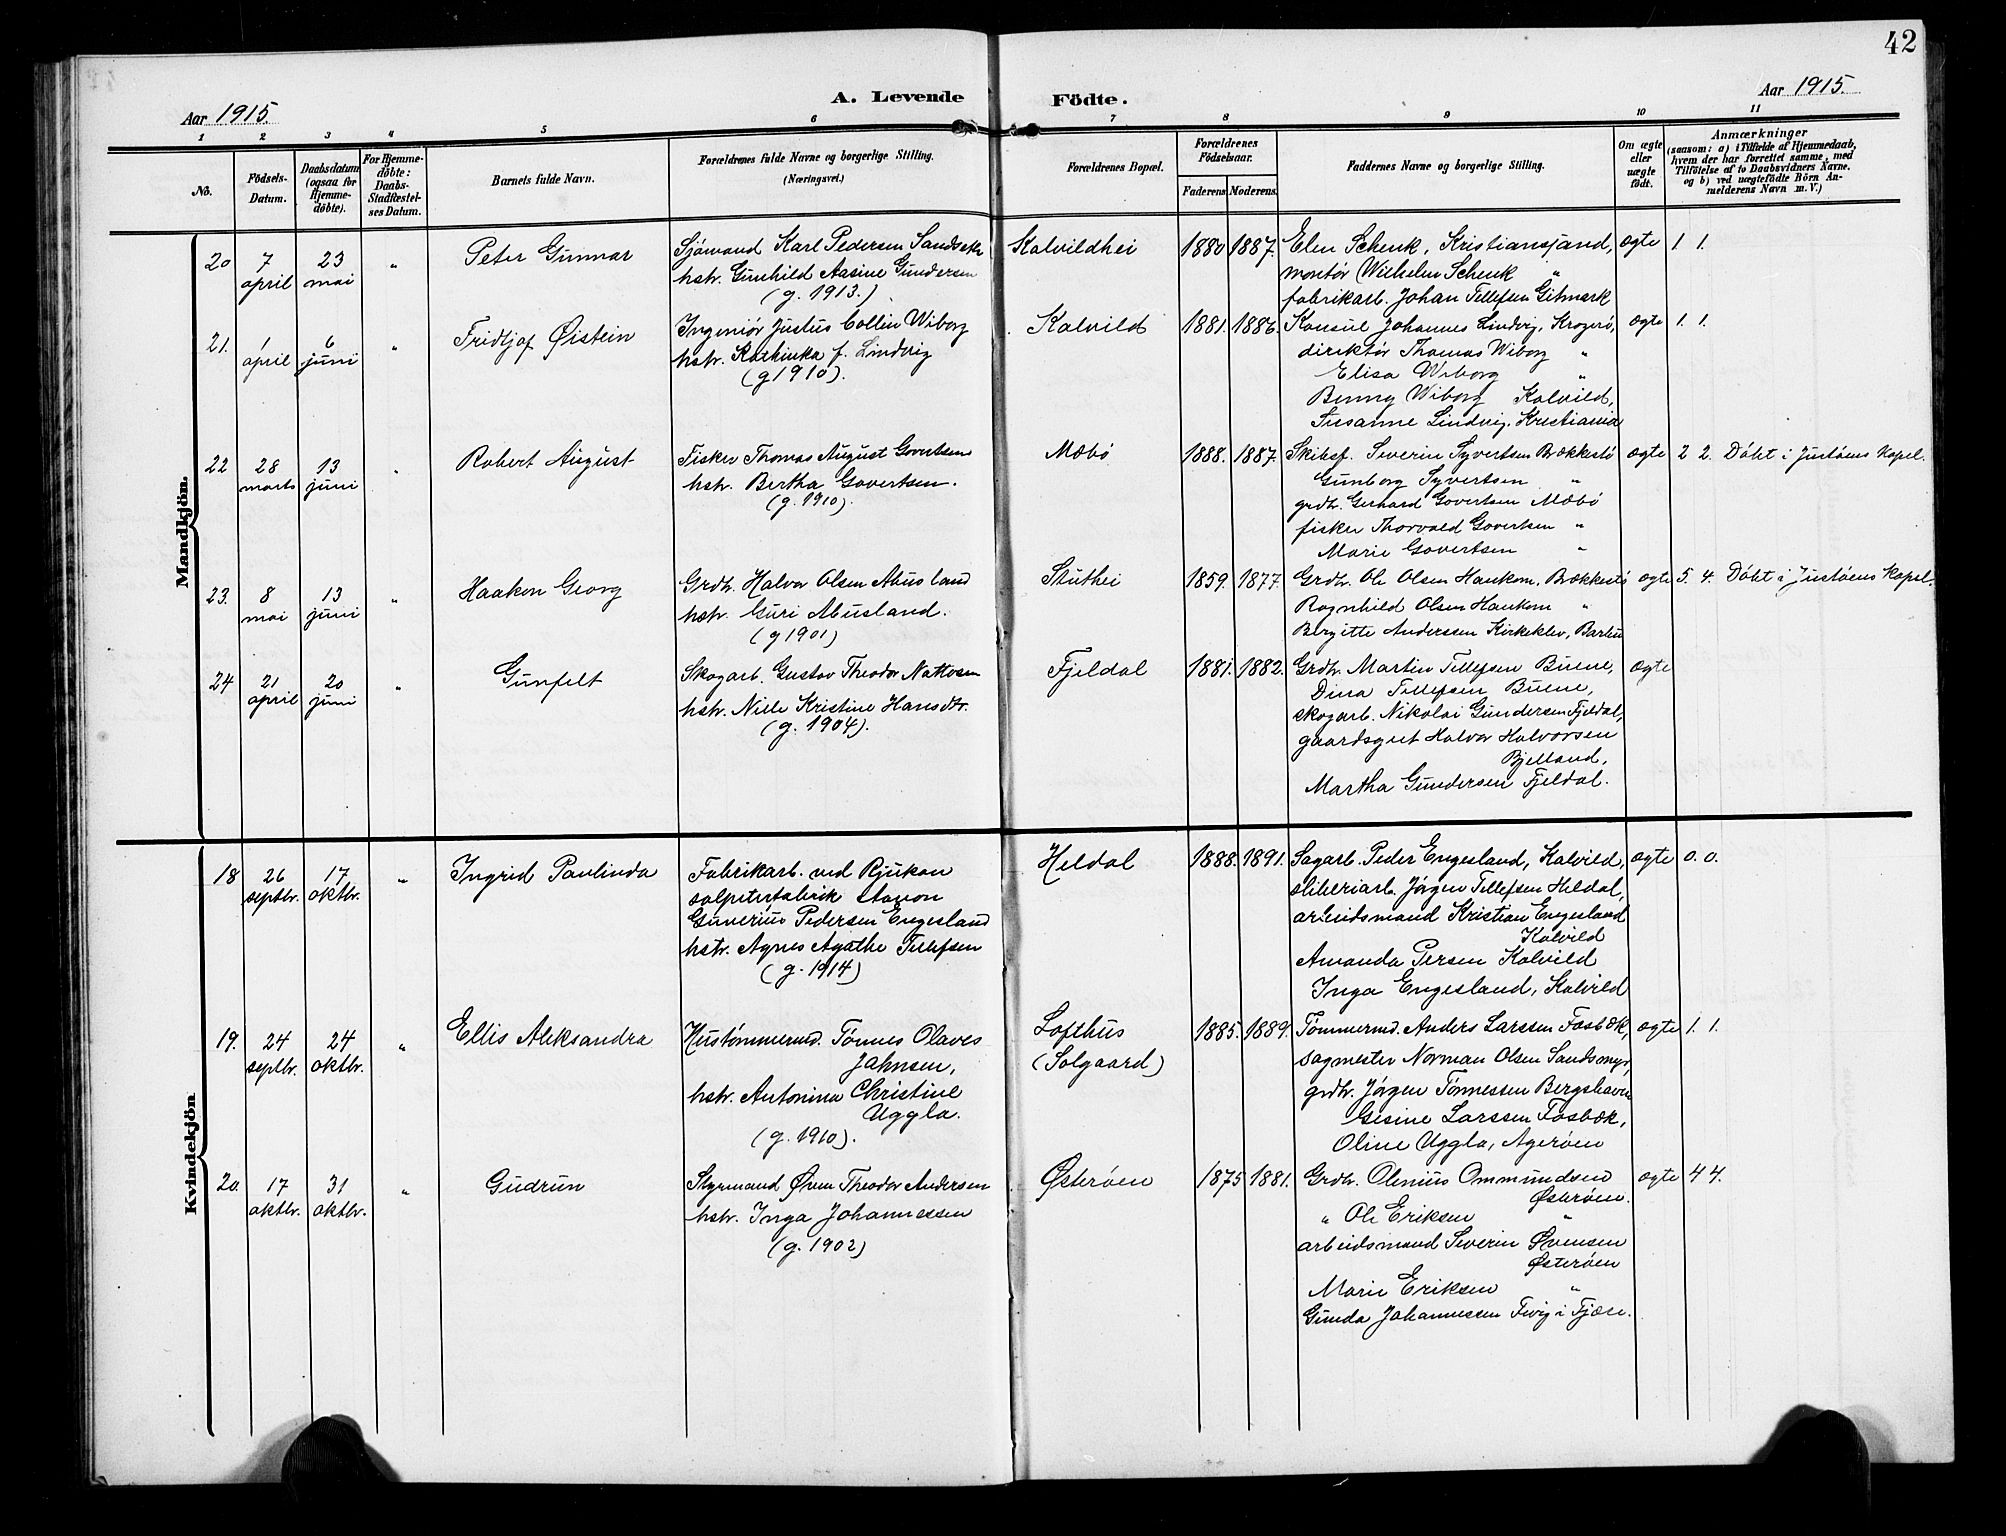 42
Aar 1915.
A. Levende Födte.
Aar 1915.
1 2 3 4 5 6 7 8 9 10 11
No.
Födsels-
Datum.
Daabsdatum
(ogsaa for
Hjemme-
döbte).
For Hjemme-
döbte:
Daabs-
Stadfæstel-
ses Datum.
Barnets fulde Navn.
Forældrenes fulde Navne og borgerlige Stilling.
(Næringsvei.)
Forældrenes Bopæl.
Forældrenes
Födselsaar.
Faderens. Moderens.
Faddernes Navne og borgerlige Stilling.
Om ægte
eller
uægte
födt.
Anmærkninger
(saasom: a) i Tilfælde af Hjemmedaab,
hvem der har forrettet samme, med
Tilföielse af to Daabsvidners Navne.
og b) ved uægtefödte Börn An-
melderens Navn m. V.)
Mandkjön.
20
7
april
23
mai
"
Peter Gunnar
Sjömand Karl Pedersen
hstr. Gunhild Aasine Gundersen
(g. 1913.)
Kalvildhei
1880 1887.
Elen Schenk, Kristianssand,
montör Wilhelm Schenk "
fabrikarb. Johan Tellefsen Gitmark
ægte
1. 1.
21.
1
april
6
juni
"
Fridtjof Øistein
Ingeniör Justus Collin Wiborg
hstr. Kathinka f. Lindvig
(g 1910).
Kalvild
1881. 1886.
Konsul Johannes Lindvig, Kragerö,
direktör Thomas Wiborg "
Elisa Wiborg "
Benny Wiborg Kalvild,
Susanne Lindvig, Kristiania
ægte
1. 1.
22
28
marts
13
juni
"
Robert August
Fisker Thomas August Govertsen
hstr. Bertha Govertsen.
(g. 1910).
Mæbö
1888. 1887.
Skibsf. Severin Syvertsen Brækkestö
Gunborg Syvertsen "
grdbr. Gerhard Govertsen Mæbö
fisker Thorvald Govertsen "
Marie Govertsen "
ægte
2 2. Döbt i Justöens kapel.
23.
8
mai
13
juni
"
Haakon Georg
Grdbr. Halvor Olsen Abusland
hstr. Guri Abusland.
(g 1901)
Stuthei
1859. 1877.
Grdbr. Ole Olsen Haukom, Brækkestö
Ragnhild Olsen Haukom "
Bergitte Anderssen Kirkeklev, Barbu
ægte
5. 4. Döbt i Justöens kapel.
24
21
april
20
juni
"
Gunfelt
Skogarb. Gustav Theodor
hstr. Nille Kristine Hansdtr.
(g. 1904).
Fjeldal
1881. 1882.
Grdbr. Martin Tellefsen Buene,
Dina Tellefsen Buene,
skogarb. Nikolai Gundersen Fjeldal,
gaardsgut Halvor Halvorsen
Bjelland,
Martha Gundersen Fjeldal.
ægte
Kvindekjön
18
26
septbr.
17
oktbr.
"
Ingrid Paulinda
Fabrikarb. ved Rjukan
salpeterfabrik
Guverius Pedersen Engesland
hstr. Agnes Agathe Tellefsen
(g. 1914)
Heldal
1888. 1891.
Sagarb. Peder Engesland, Kalvild,
sliberiarb. Jörgen Tellefsen Heldal,
arbeidsmand Kristian Engesland
Kalvild
Amanda Persen Kalvild
Inga Engesland, Kalvild
ægte
0. 0.
19.
24
septbr.
24
oktbr.
"
Ellis Aleksandra
Hustömmermd. Tönnes Olaves
Jahnsen,
hstr. Antonina Christine
Uggla.
(g. 1910).
Lofthus
(Solgaard)
1885. 1889.
Tömmermd. Anders Larssen Fosbæk,
sagmester Norman Olsen Sandsmyr,
grdbr. Jörgen Tönnessen Bergshaven
Gesine Larssen Fosbæk,
Oline Uggla, Ageröen
ægte
1. 1.
20.
17
oktbr.
31
oktbr.
"
Gudrun
Styrmand Øven Theodor Andersen
hstr. Inga Johannessen
(g. 1902)
Østeröen
1875 1881.
Grdbr. Olenius Ommundsen
Østeröen.
" Ole Eriksen "
arbeidsmand Severin Øvensen
Østeröen
Marie Eriksen "
Gunda Johannessen Fevig i Fjære.
ægte
4 4.